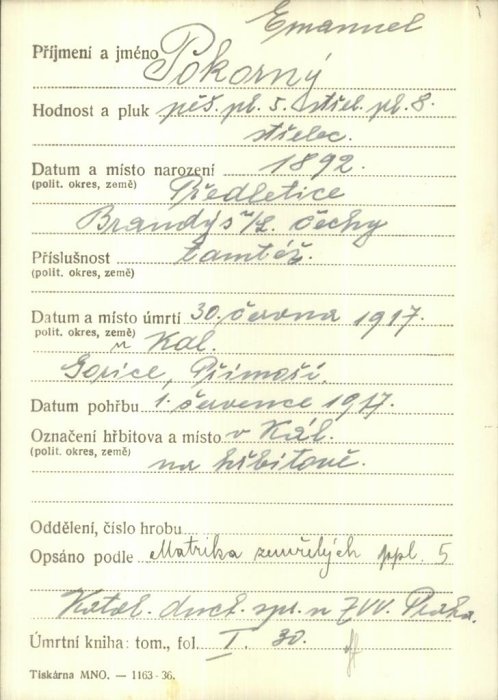 Emanuel
Příjmení a jméno Pokorný
Hodnost a pluk pěš. pl. 5. střel. pl. 8.
střelec.
Datum a místo narození 1892.
(polit. okres, země) Předletice
Brandýs n/L. Čechy
Příslušnost tamtéž.
(polit. okres, země)
Datum a místo úmrtí 30. června 1917.
polit. okres, země) u Kal.
Gorice, Přímoří.
Datum pohřbu 1. července 1917.
Označení hřbitova a místo v Kál.
(polit. okres, země) na hřbitově.
Oddělení, číslo hrobu
Opsáno podle Matrika zemřelých ppl. 5
Katol. duch. spr. u ZVV. Praha.
Úmrtní kniha: tom., fol. I. 30.
Tiskárna MNO. — 1163-36.